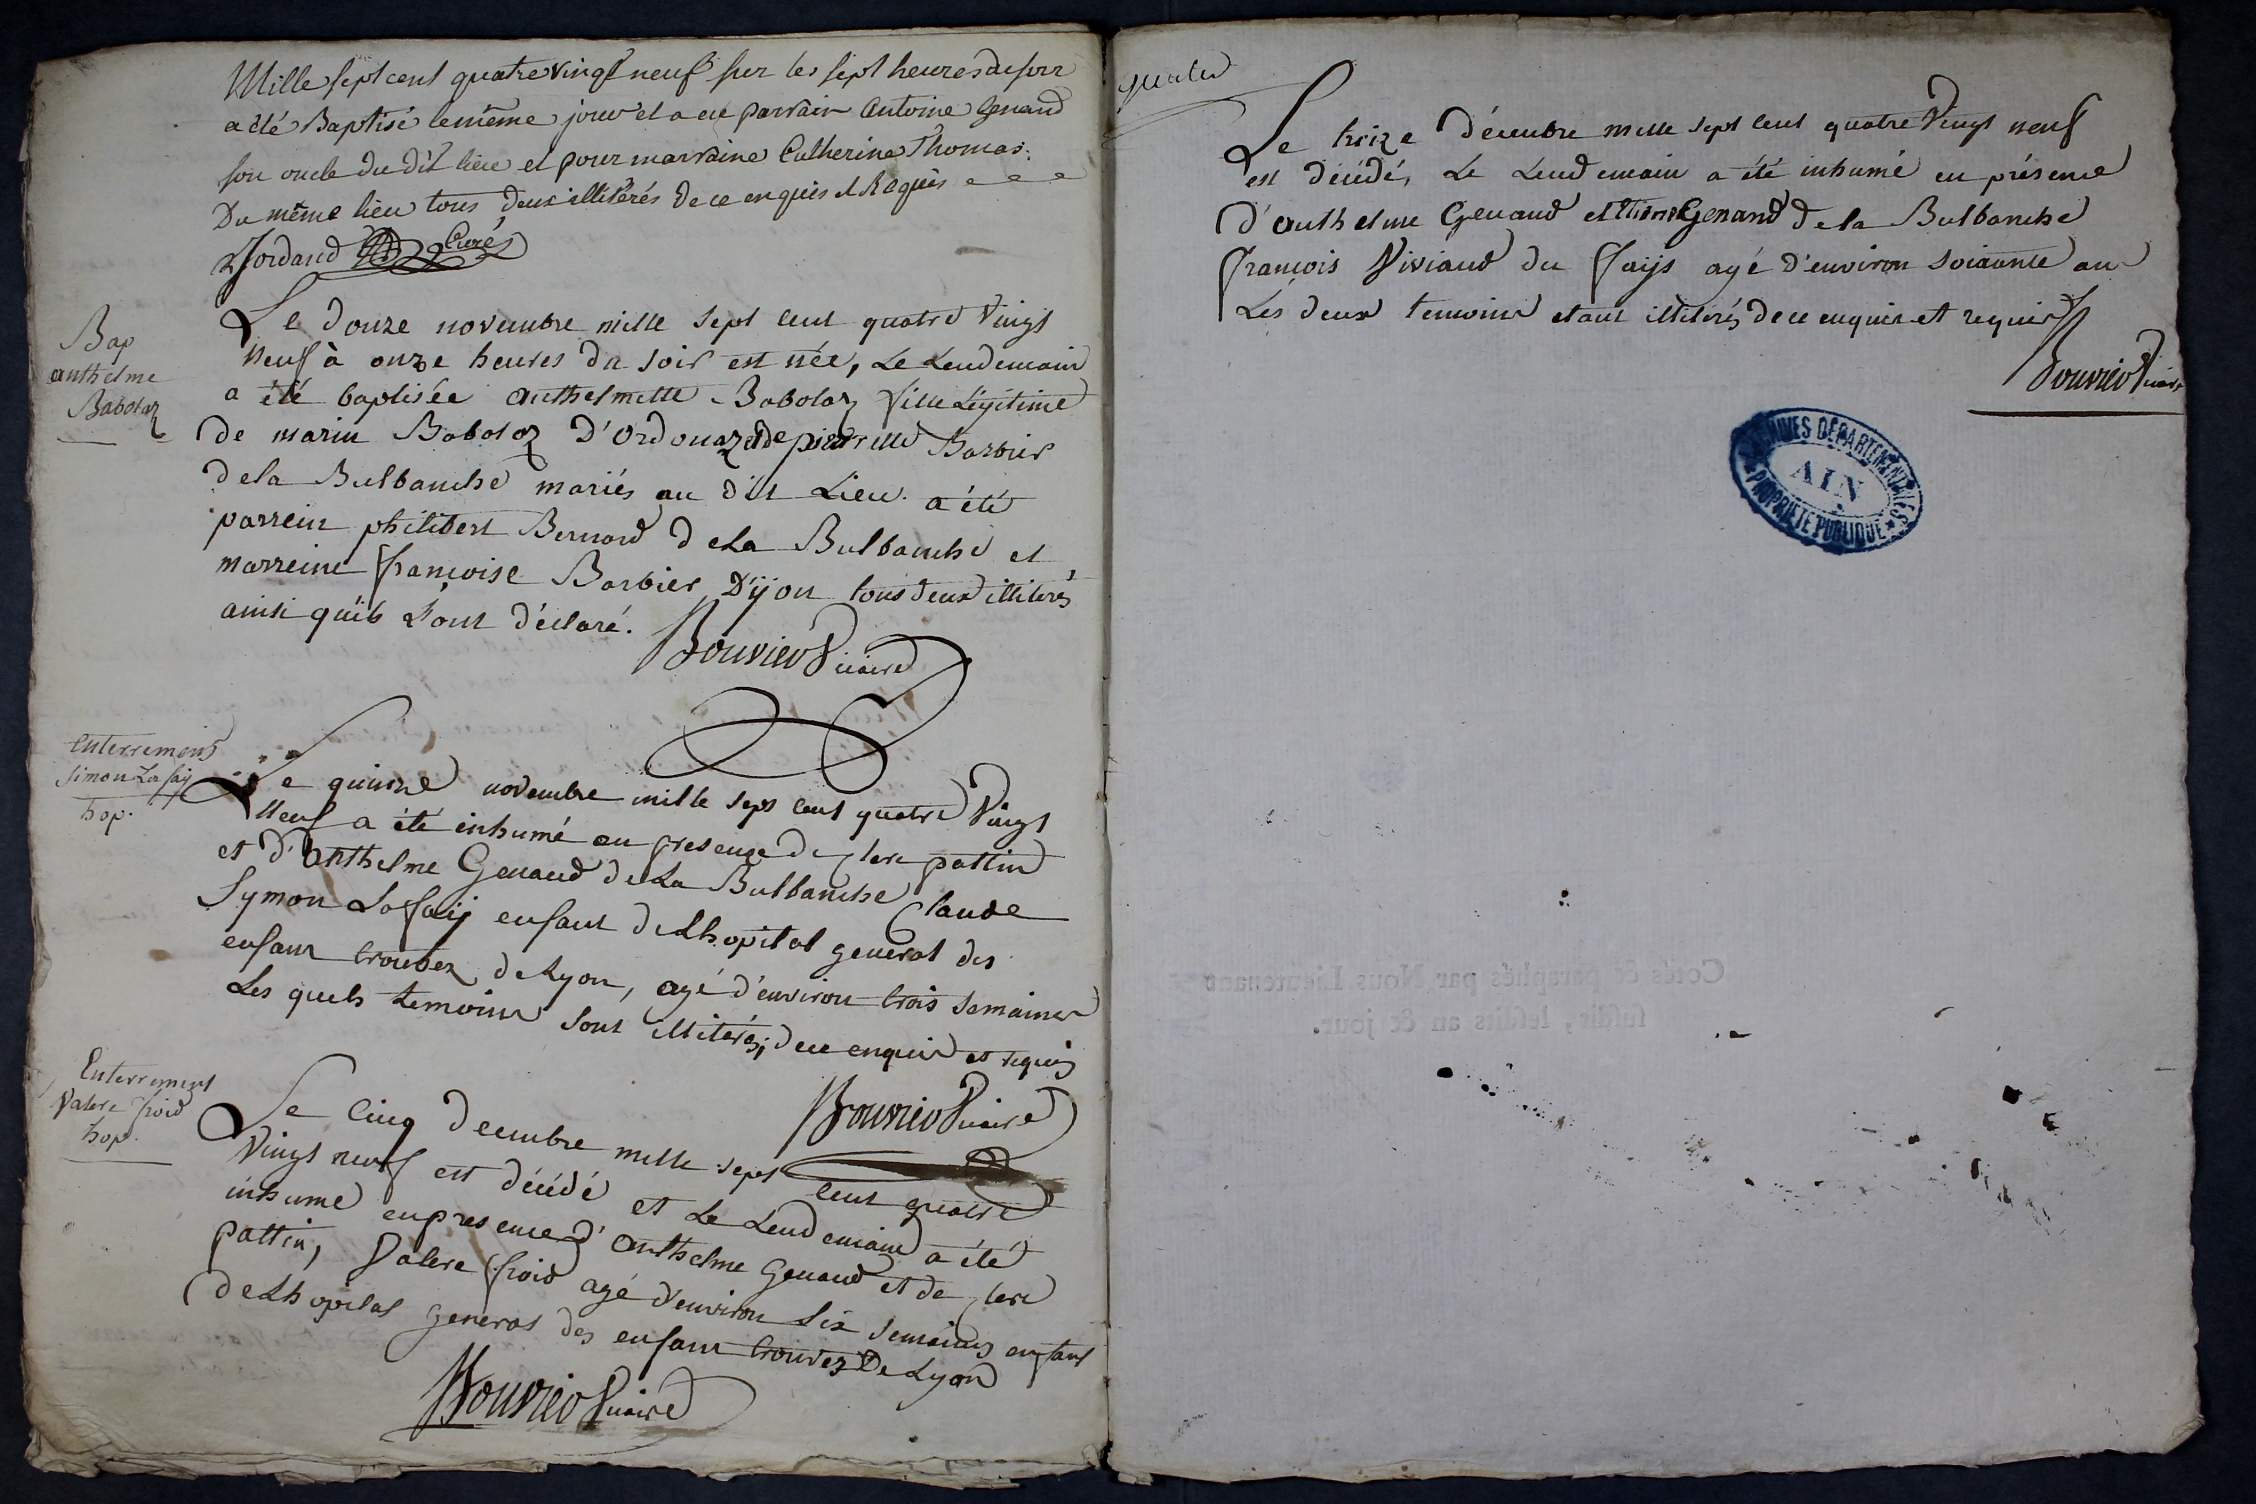 Mille sept cent quatre vingt neuf sur les sept heures du soir
a été Baptisé le même jour et a eu parrain Antoine Genand
son oncle du dit lieu et pour marraine Catherine Thomas
Du même lieu tous deux illitérés de ce enquis et Requis
Jordand Curé
Bap
anthelme
Babolaz
Le douze novembre mille sept cent quatre Vingt
neuf à onze heures du soir est née, Le Lendemain
a été baptisée Anthelmette Babolaz fille Légitime
de marin Babolaz D'Ordonaz et de pierrette Barbier
de la Bulbanche mariés au dit Lieu. a été
parrein philibert Bernard de La Bulbanche et
marreine françoise Barbier D'ijon tous deux illiterés
ainsi qu'ils L'ont déclaré.
Bouvier Vicaire
Enterrement
Simon Lafaij
hop.
Le quinze novembre mille sept cent quatre Vingt
Neuf a été inhumé en presence de clere pattin
et d'Anthelme Genand de La Bulbanche Claude
Symon Lafaij enfant de Lhopital general des
enfant trouvez de Lyon, agé d'environ trois semaines
Les quels temoins sont illiterés, de ce enquis et requis
Bouvier Vicaire
Enterrement
Valere froid
hop.
Le Cinq Decembre mille sept cent quatre
Vingt neuf est décédé et Le Lendemain a été
inhumé en presence d'Anthelme Genand et de clere
pattin, Valere froid agé d'environ Six Semaines enfant
de Lhopital general des enfant trouvez De Lyon
Bouvier Vicaire
quater
Le treize décembre mille sept cent quatre Vingt neuf
est décédé, Le Lendemain a été inhumé en présence
d'anthelme Genand et Genand de la Bulbanche
François Viviand du Faijs agé d'environ soixante ans
Les deux temoins etant illiterés de ce enquis et requis
Bouvier Vicaire
ARCHIVES DÉPARTEMENTALES
AIN
PROPRIÉTÉ PUBLIQUE
Cotés & paraphés par Nous Lieutenant
susdit, lesdits an & jour.